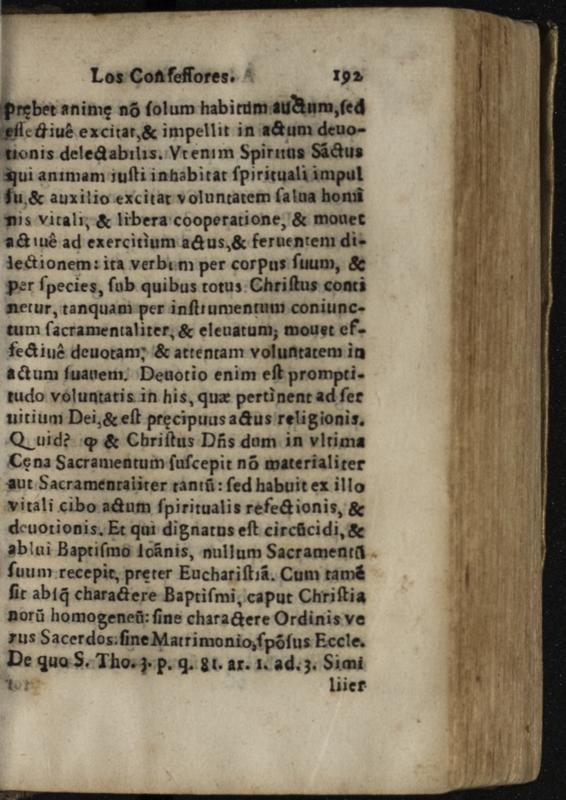 Los Confessores. 192
prębet animę nõ solum habitum auctum, sed
effectiuê excitat, & impellit in actum deuo-
tionis delectabilis. Vt enim Spiritus Sãctus
qui animam iusti inhabitat spirituali impul
su, & auxilio excitat voluntatem salua homi
nis vitali, & libera cooperatione, & mouet
actiuê ad exercitium actus, & feruentem di-
lectionem: ita verbum per corpus suum, &
per species, sub quibus totus Christus conti
netur, tanquam per instrumentum coniunc-
tum sacramentaliter, & eleuatum; mouet ef-
fectiuê deuotam; & attentam voluntatem in
actum suauem. Deuotio enim est prompti-
tudo voluntatis in his, quæ pertinent ad ser
uitium Dei, & est pręcipuus actus religionis.
Quid? ꝙ & Christus Dñs dum in vltima
Cęna Sacramentum suscepit nõ materialiter
aut Sacramentaliter tantũ: sed habuit ex illo
vitali cibo actum spiritualis refectionis, &
deuotionis. Et qui dignatus est circũcidi, &
ablui Baptismo Ioãnis, nullum Sacramentũ
suum recepit, pręter Euchariſtiã. Cum tamẽ
sit absq̃ charactere Baptismi, caput Christia
norũ homogeneũ: sine charactere Ordinis ve
rus Sacerdos: sine Matrimonio, spõsus Eccle.
De quo S. Tho. 3. p. q. 81. ar. 1. ad. 3. Simi
liter